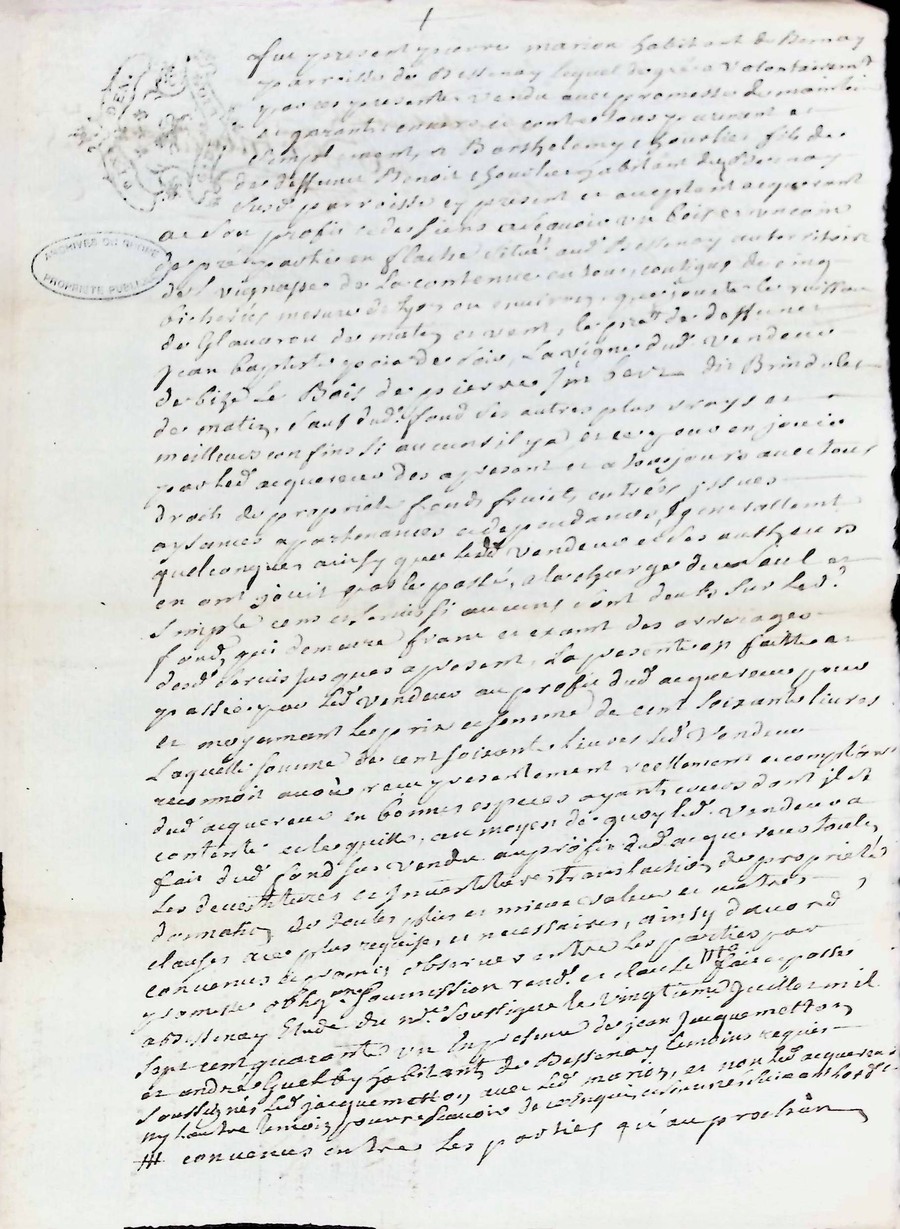 1
fut present pierre marion habitant de Bernay
parroisse de Bessenay lequel de gré a volontairemt
par ces presentes vendu avec promesse de maintenir
et garantir envers et contre tous purement et
simplement, a Barthelemy chouelier fils de
de deffunct Benoit chouelier habitant de Bessenay
susd parroisse cy present et acceptant acquereur
a son profit et des siens a sçavoir un bois et un coin
de pré partie en flache situé aud Bessenay au territoire
de vignasse de la contenue en tout contigus de cinq
bicherées mesure de lyon ou environ, que jouxte le ruisseau
de Glavarou de matin et vent, le pré de deffunct
Jean baptiste de soir, la vigne dud vendeur
de bize le Bois de pierre dit Brindolet
de matin, sauf dud fond ses autres plus vrays et
meilleurs confins si aucuns il y a et ce pour en jouir
par led acquereur des a present et a toujours avec tous
droits de propriété fond, fruits, entrées, issues
aysances apartenances et dependances, generallemt
quelconques ainsy que led vendeur et ses autheurs
en ont jouit par le passé, a la charge du seul et
simple cens et servis si aucuns sont deubs sur led
fond, qui demeure franc et exant des arrerages
desd servis jusques a present, la presente vente faitte et
passée par led vendeur au profit dud acquereur pour
et moyennant le prix et somme de cent soixante livres
laquelle somme de cent soixante livres led vendeur
reconnoit avoir receu presentement reellement et comptant
dud acquereur en bonnes especes ayant cours dont il est
content et le quitte, au moyen de quoy led vendeur a
fait dud fond sus vendu au profit dud acquereur toutes
les devestitures et investitures translation de propriété
donnation de toutes plus et mieux values et autres
clauses avec plus requises et necessaires, ainsy d'acord
convenus et promis observer entre les parties par
promesse oblign soumission rend et clause # fait et passé
a Bessenay Etude du nore soussigné le vingtieme juillet mil
sept cent quarante un en presence de jean Jacquemetton
et andré Guelby habitant de Bessenay temoins requis
soussignés led jacquemetton avec led marion, et non led acquereur
ny l'autre temoin pour ne sçavoir de ce enquis et
# convenus entre les parties qu'au prochain
ARCHIVES DU RHONE
PROPRIETE PUBLIQUE